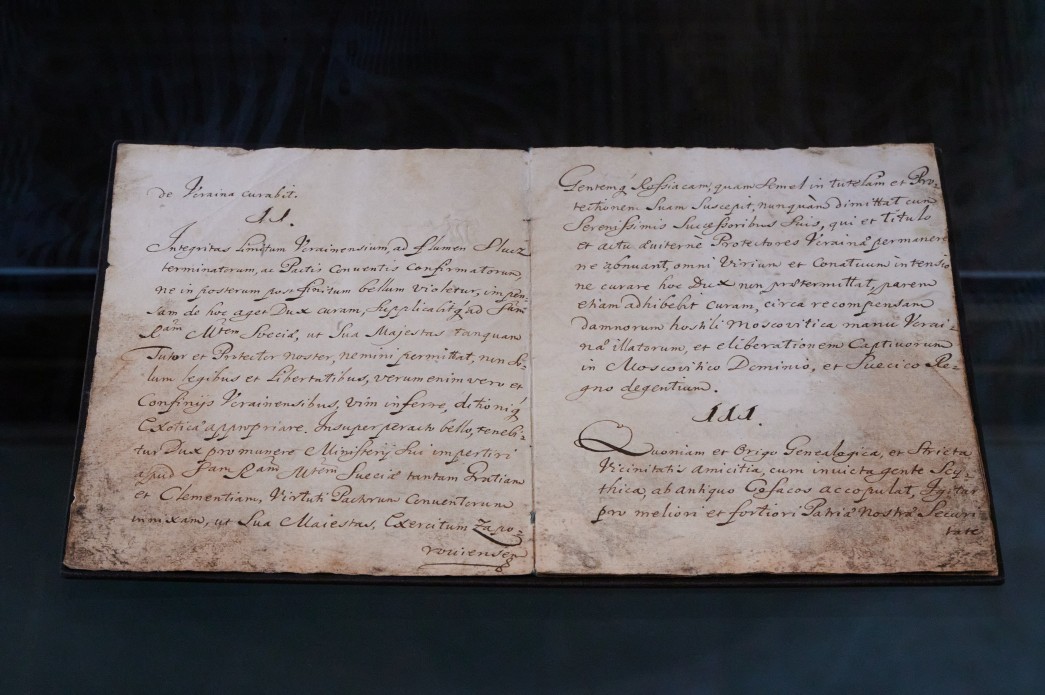 de Ucraina curabit.
II.
Integritas limitum Ucrainensium, ad flumen Slucz
terminatorum, ac Pactis Conventis Confirmatorum,
ne in posterum post finitum bellum violetur, impen-
sam de hoc aget Dux curam, supplicabitq; ad Sām
Rām Mtem Sueciæ, ut Sua Majestas tanquam
Tutor et Protector noster, nemini permittat, non so-
lum legibus et Libertatibus, verum enim vero et
Confinijs Ucrainensibus, vim inferre, ditioniq;
Exoticæ appropriare. Insuper peracto bello, tenebi-
tur Dux pro munere Ministerij Sui impertiri
apud Sam Ram Mtem Sueciæ tantam Gratiam
et Clementiam, Virtuti Pactorum Conventorum
innixam, ut Sua Maiestas, Exercitum Zapo-
roviensem
Gentemq; Rossiacam, quam Semel in tutelam et Pro-
tectionem Suam Suscepit, nunquam dimittat cum
Serenissimis Successoribus Suis, qui et titulo
et actu æviterne Protectores Ucrainæ permanere
ne abnuant, omni Virium et Conatuum intensio
ne curare hoc Dux non prætermittat, parem
etiam adhibebit Curam, circa recompensam
damnorum hostili Moscovitica manu Ucrai-
næ illatorum, et eliberationem Captivorum
in Moscovitico Dominio, et Suecico Re-
gno degentium.
III.
Quoniam et Origo Genealogica, et Stricta
Vicinitatis amicitia, cum invicta gente Scy-
thica, ab antiquo Cosacos accopulat, Igitur
pro meliori et fortiori Patriæ Nostræ Securi-
tate